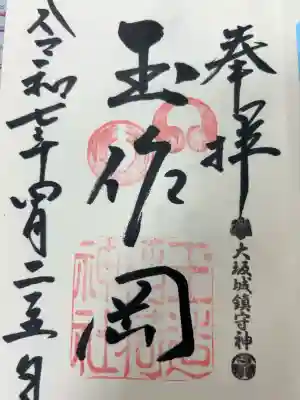 奉拝
大坂城鎮守神
玉作岡
令和七年四月二五日